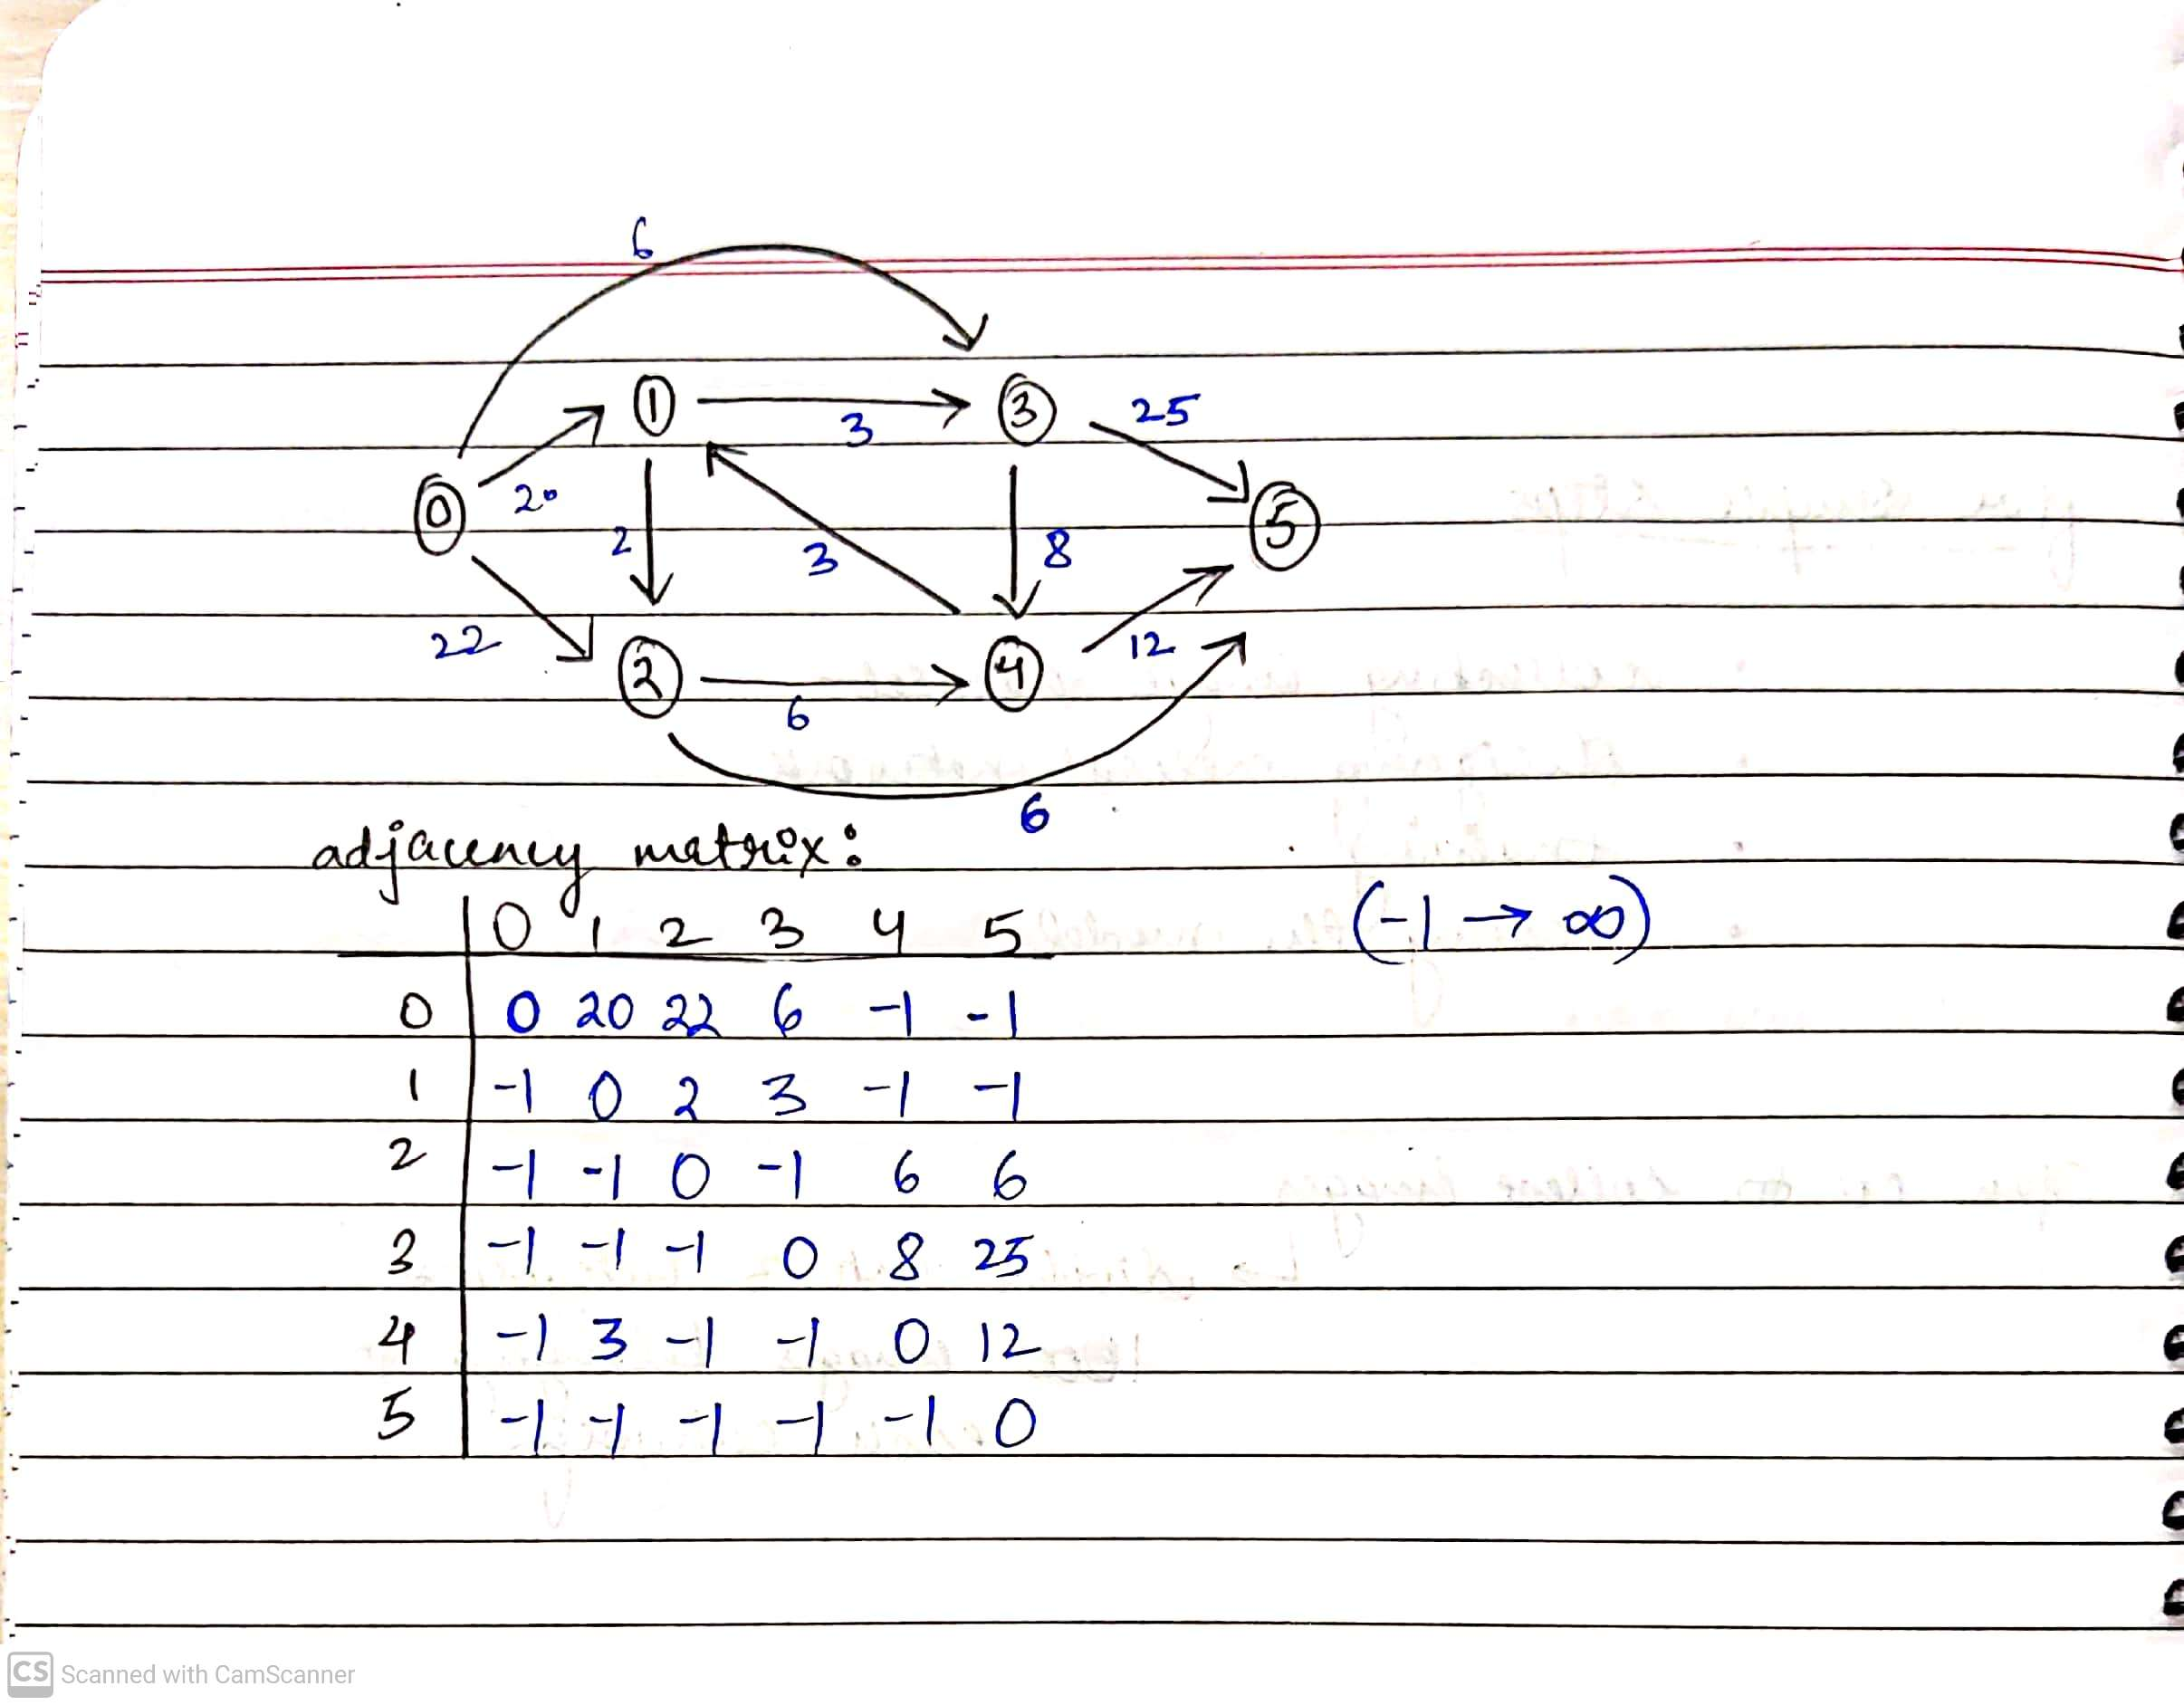 6
1 3 3 25
0 20 2 3 8 5
22 2 6 4 12
6
adjacency matrix:
0 1 2 3 4 5 (-1 → ∞)
0 0 20 22 6 -1 -1
1 -1 0 2 3 -1 -1
2 -1 -1 0 -1 6 6
3 -1 -1 -1 0 8 25
4 -1 3 -1 -1 0 12
5 -1 -1 -1 -1 -1 0
CS Scanned with CamScanner